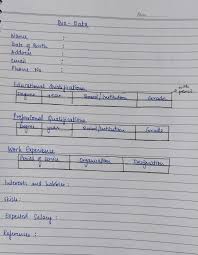 Bio-Data
Name :
Date of Birth :
Address :
Email :
Phone No :
Educational Qualifications
Degree year Board/Institution Grade
Professional Qualifications
Degree year Board/Institution Grade
Work Experience
Period of Organisation Designation
Interests and Hobbies :
Skills :
Expected Salary :
References :